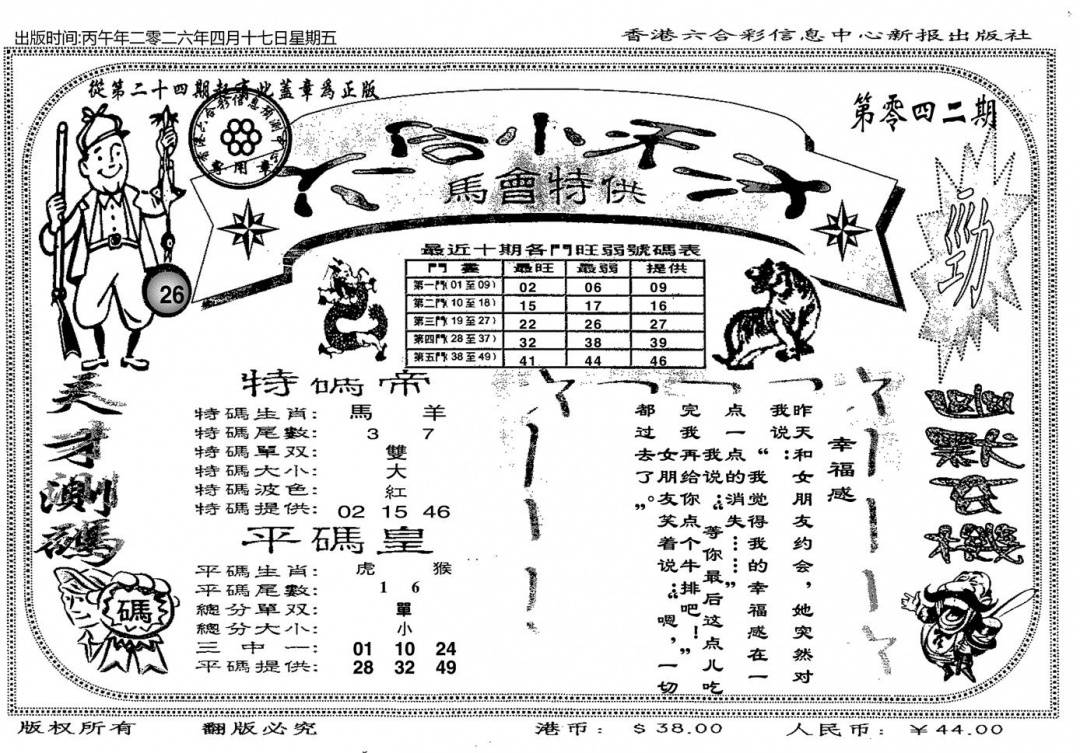 出版时间:丙午年二零二六年四月十七日星期五
香港六合彩信息中心新报出版社
從第二十四期起有此蓋章爲正版
第零四二期
專用章
六合小天才
馬會特供
勁
26
最近十期各門旺弱號碼表
門 最旺 最弱 提供
第一門(01至09) 02 06 09
第二門(10至18) 15 17 16
第三門(19至27) 22 26 27
第四門(28至37) 32 38 39
第五門(38至49) 41 44 46
天才測碼
碼
特碼帝
特碼生肖: 馬 羊
特碼尾數: 3 7
特碼單双: 雙
特碼大小: 大
特碼波色: 紅
特碼提供: 02 15 46
平碼皇
平碼生肖: 虎 猴
平碼尾數: 1 6
總分單双: 單
總分大小: 小
三中一: 01 10 24
平碼提供: 28 32 49
幸福感
昨天和女朋友约会,她突然对
我说:“我觉得我的幸福感在一
点一点的消失……”
我说:“等你最后这点儿吃
完我再给你点个牛排吧!”
女朋友笑着说:“嗯,一切
都过去了。”
幽默玄機
版权所有 翻版必究 港币: $38.00 人民币: ¥44.00